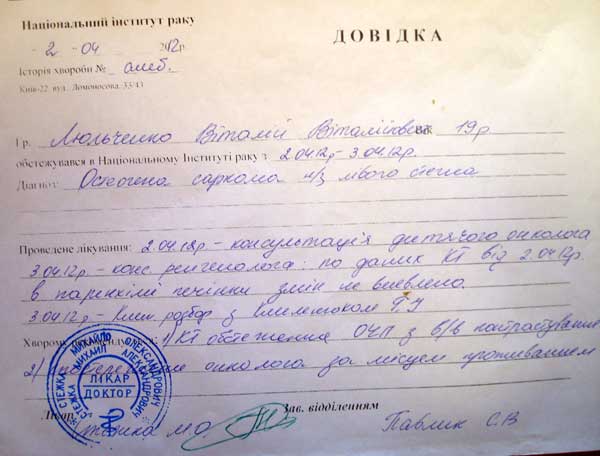 Національний інститут раку
ДОВІДКА
- 2 - 04 2012р.
Історія хвороби № амб.
Київ-22 вул. Ломоносова, 33/43
Гр. Люльченко Віталій Віталійович Вік 19р
обстежувався в Національному Інституті раку з 2.04.12р - 3.04.12р.
Діагноз: Остеогена саркома н/з лівого стегна
Проведене лікування: 2.04.12р - консультація дитячого онколога
3.04.12р - конс. рентгенолога: по даним КТ від 2.04.12р.
в паренхімі печінки змін не виявлено
3.04.12р - Клін. розбор з Климнюком Г.І
Хворому 1) КТ обстеження ОЧП з в/в контрастування
2) онколога за місцем проживанням
СТЕЖКА МИХАЙЛО ОЛЕКСАНДРОВИЧ
СТЕЖКА МИХАИЛ АЛЕКСАНДРОВИЧ
ЛІКАР
ДОКТОР
Лікар Стежка М.О.
Зав. відділенням
Павлик С.В